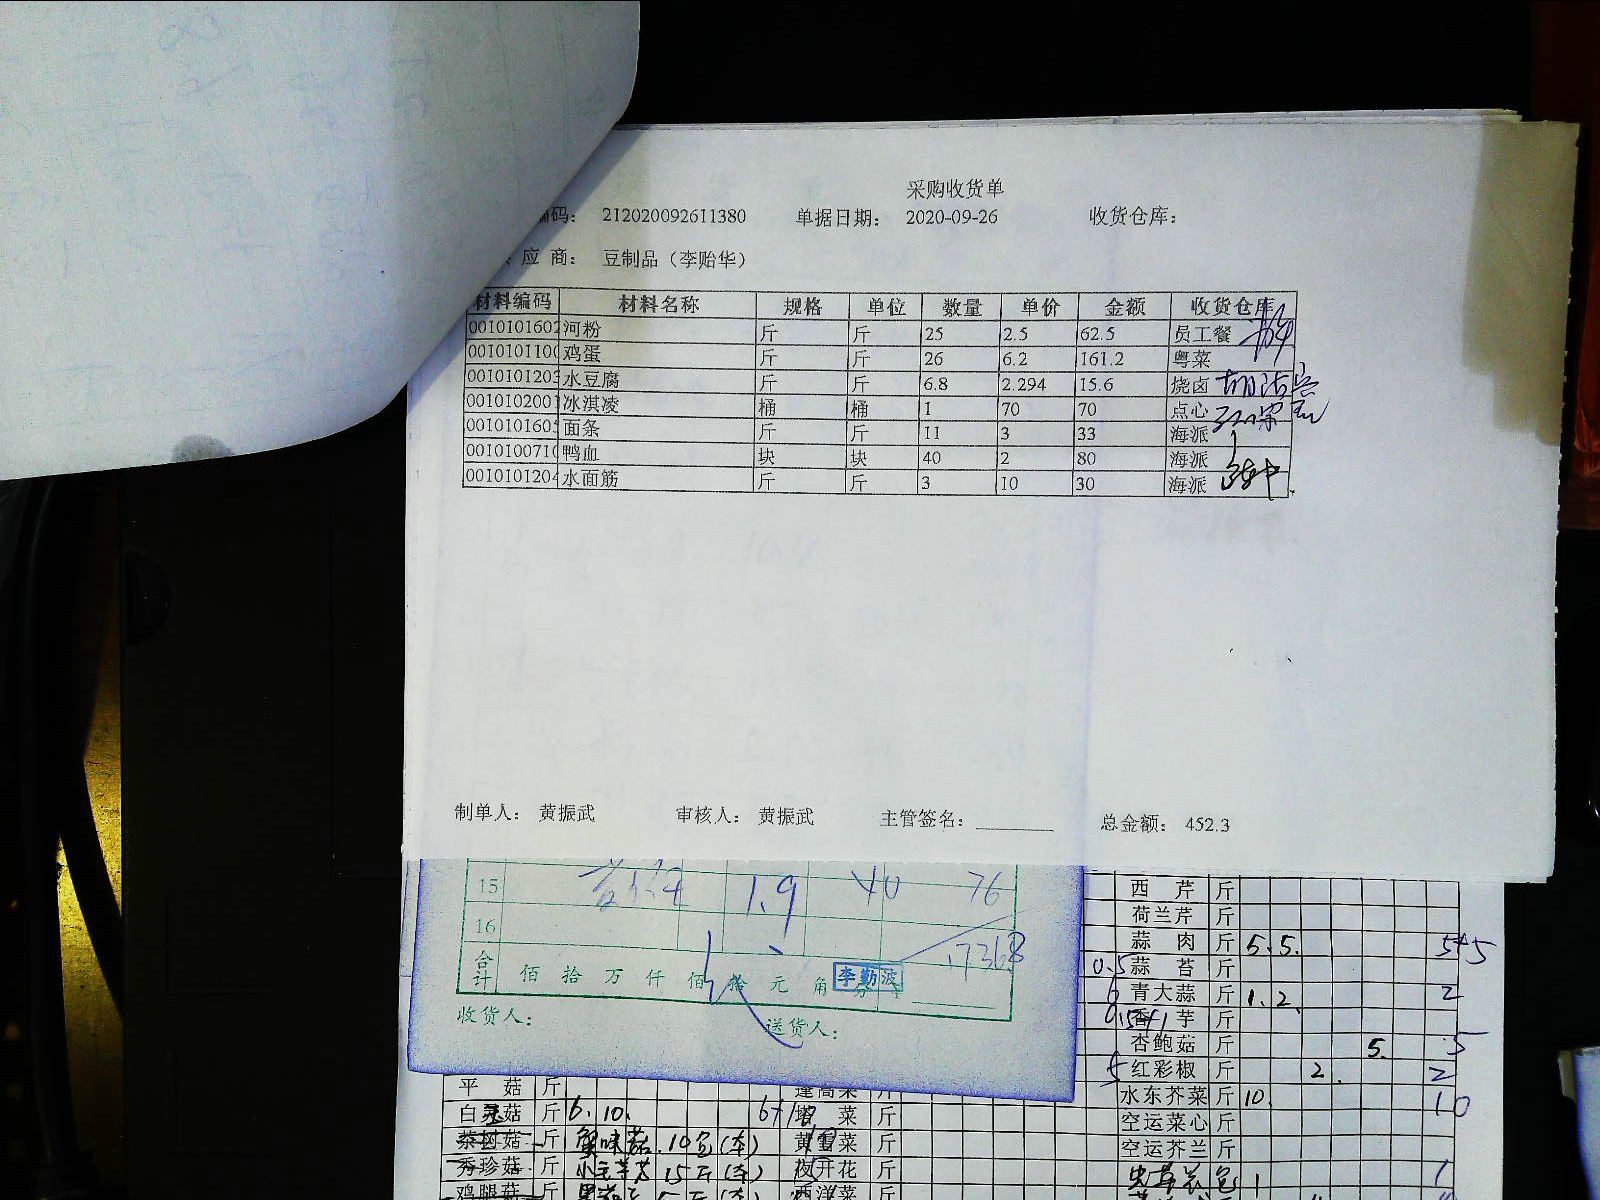 采购收货单
编码： 212020092611380 单据日期： 2020-09-26 收货仓库：
应 商： 豆制品（李贻华）
材料编码 材料名称 规格 单位 数量 单价 金额 收货仓库
0010101602 河粉 斤 斤 25 2.5 62.5 员工餐
0010101100 鸡蛋 斤 斤 26 6.2 161.2 粤菜
0010101203 水豆腐 斤 斤 6.8 2.294 15.6 烧卤
0010102001 冰淇凌 桶 桶 1 70 70 点心
001010160 面条 斤 斤 11 3 33 海派
0010100710 鸭血 块 块 40 2 80 海派
0010101204 水面筋 斤 斤 3 10 30 海派
制单人： 黄振武 审核人： 黄振武 主管签名： 总金额： 452.3
15 1.9 40 76
16
合计 佰 拾 万 仟 佰 拾 元 角 分 李勤波
收货人： 送货人：
西 芹 斤
荷兰芹 斤
蒜 肉 斤 5. 5. 5+5
0.5 蒜 苔 斤
6 青大蒜 斤 1. 2. 2
香 芋 斤
杏鲍菇 斤 5. 5
5 红彩椒 斤 2. 2
水东芥菜 斤 10. 10
空运菜心 斤
空运芥兰 斤
1 1
平 菇 斤 蓬蒿菜 斤
白灵菇 斤 6. 10. 6+10 塔 菜 斤
茶树菇 斤 蟹味菇. 10包(车) 黄 菜 斤
秀珍菇 斤 15斤(车) 夜开花 斤
鸡腿菇 斤 5斤(车) 西洋菜 斤